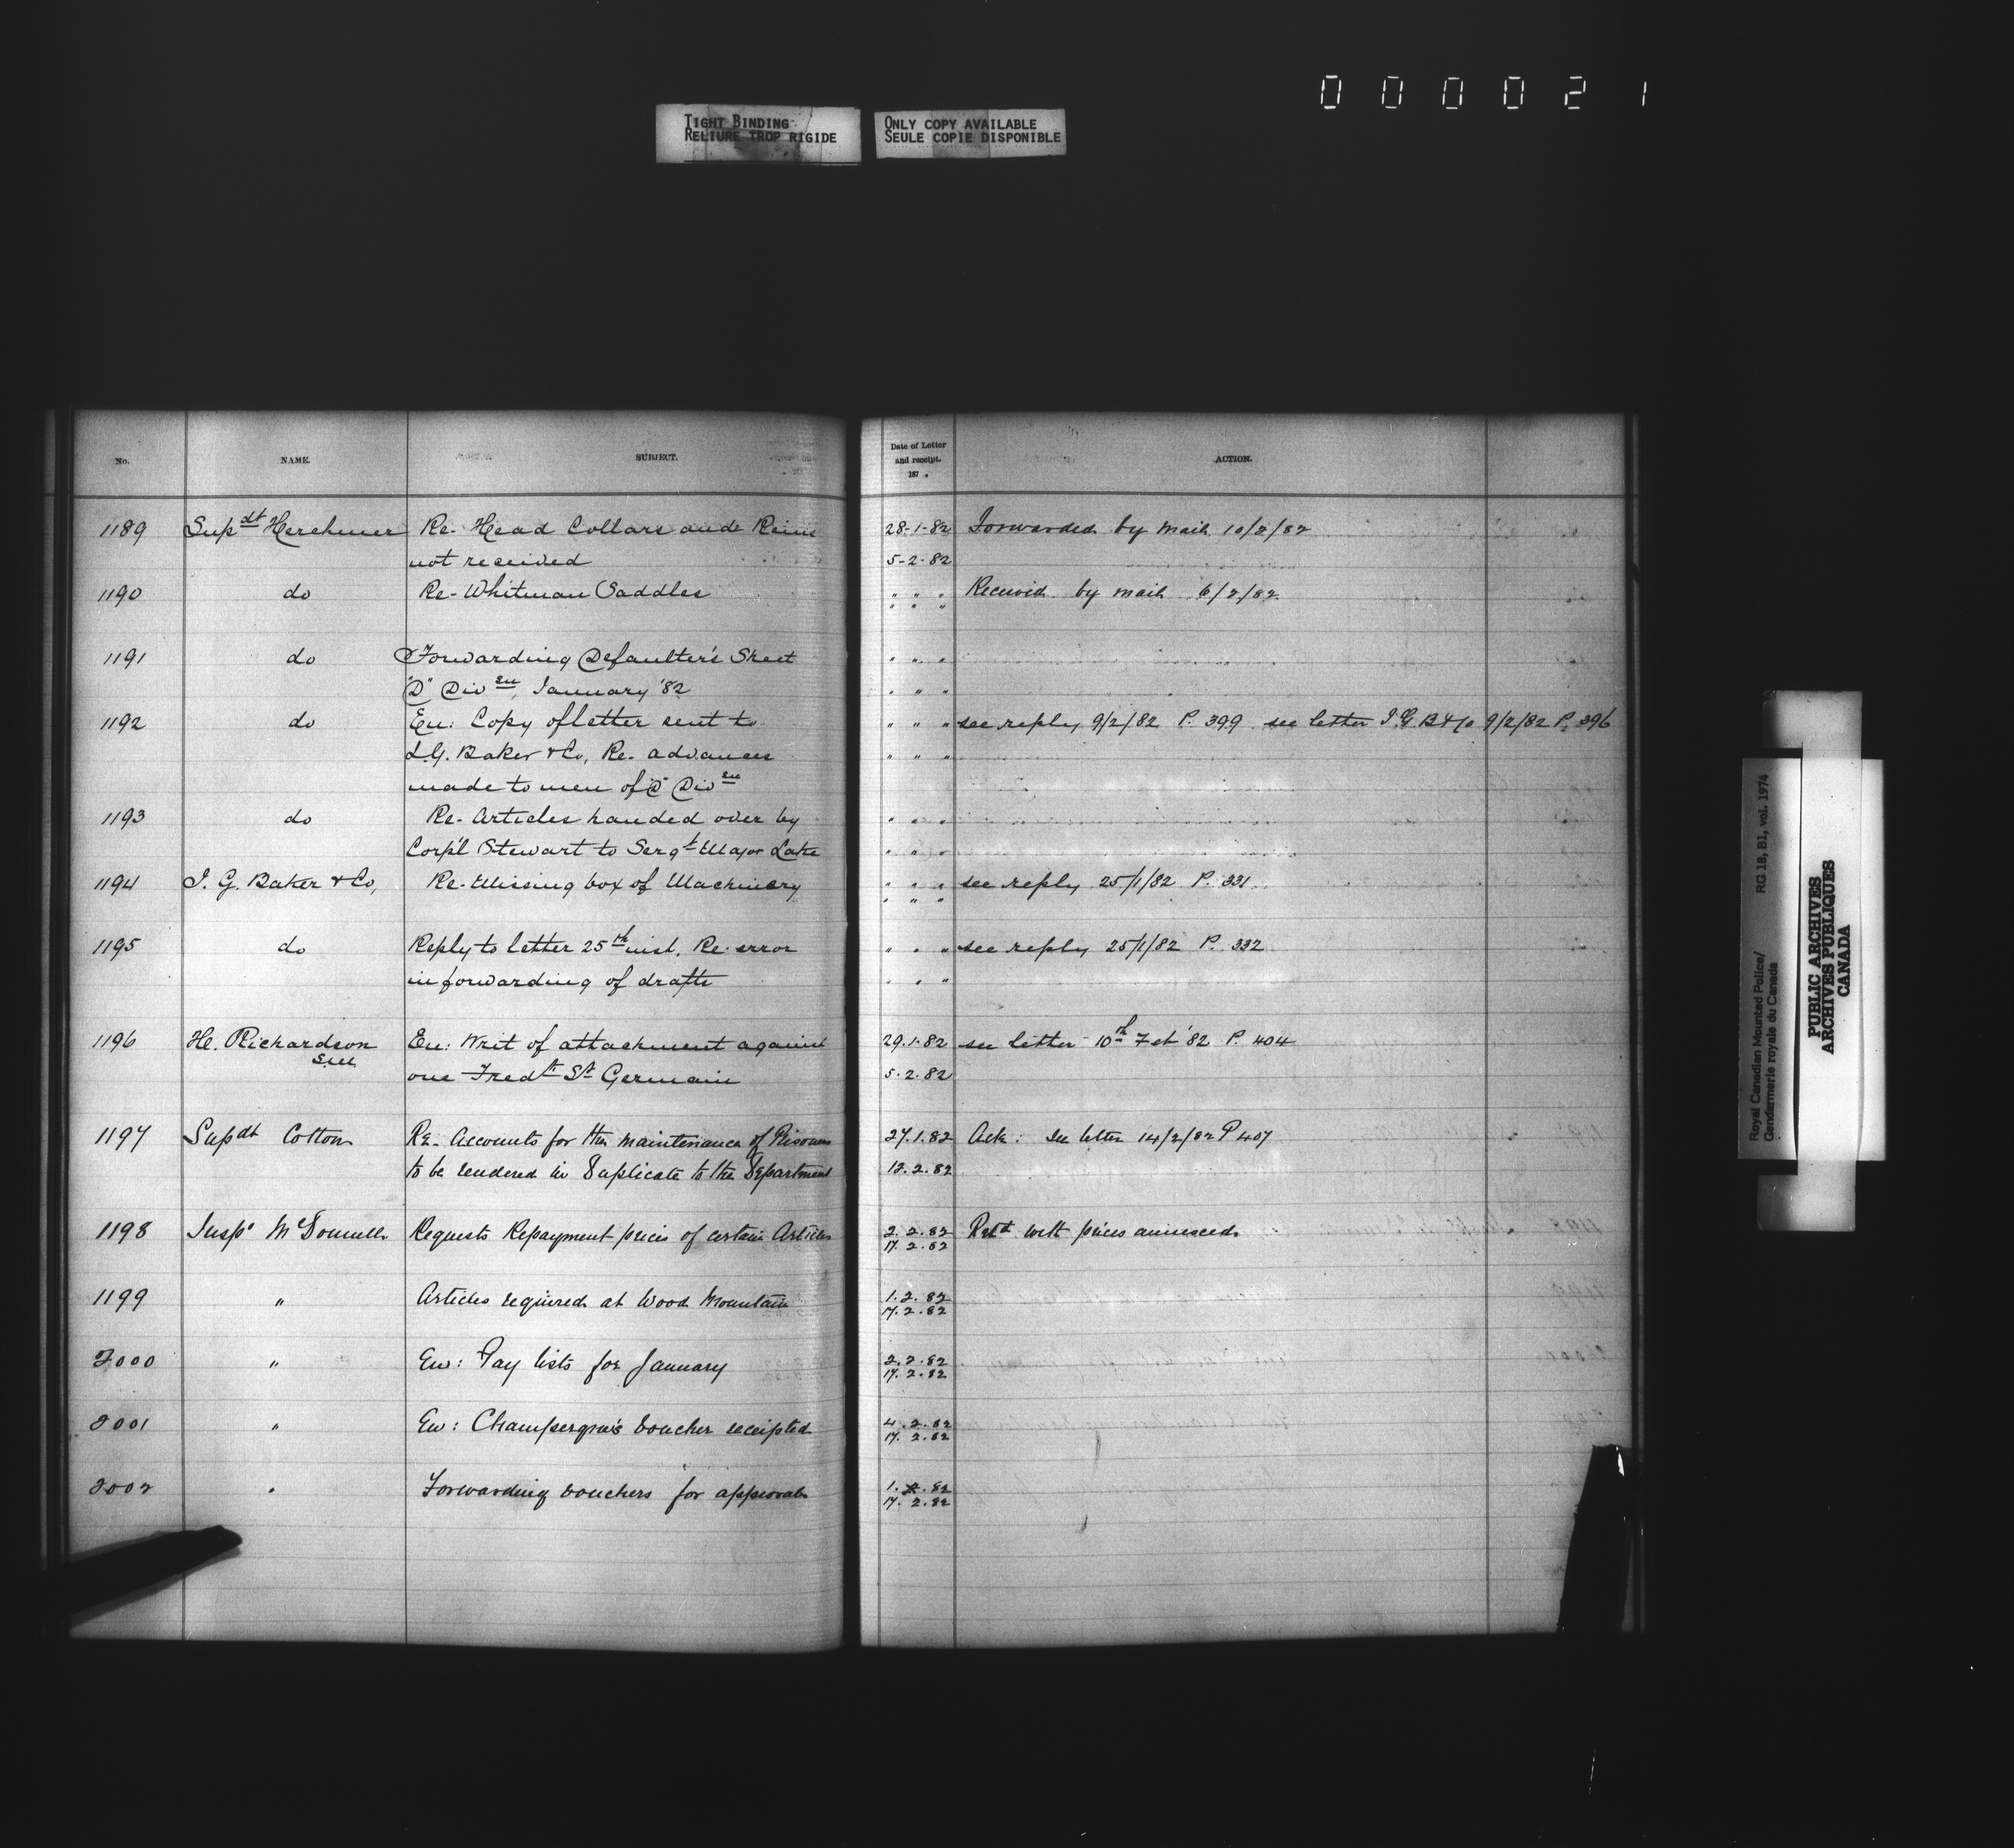 000021
TIGHT BINDING
RELIURE TROP RIGIDE
ONLY COPY AVAILABLE
SEULE COPIE DISPONIBLE
No. NAME. SUBJECT. Date of Letter and receipt. 187 . ACTION.
1189 Supdt Herchmer Re- Head Collars and Reins 28-1-82 Forwarded by mail 10/2/82
not received 5-2-82
1190 do Re- Whitman Saddles " " " Received by mail 6/2/82
" " "
1191 do Forwarding Defaulter's Sheet " " "
"D" Divsn, January '82 " " "
1192 do En: Copy of letter sent to " " " see reply 9/2/82 P. 399 see letter I.G. B & Co 9/2/82 P. 396
I.G. Baker & Co, Re- advances " " "
made to men of "D" Divsn
1193 do Re- Articles handed over by " " "
Corp'l Stewart to Sergt Major Lake " " "
1194 I. G. Baker & Co, Re- Missing box of Machinery " " " see reply 25/1/82 P. 331
" " "
1195 do Reply to letter 25th inst. Re- error " " " see reply 25/1/82 P. 332
in forwarding of drafts " " "
1196 H. Richardson En: Writ of attachment against 29.1.82 see letter 10th Feb '82 P. 404
one Fredk St Germain 5.2.82
1197 Supdt Cotton Re- Accounts for the maintenance of Prisoners 27.1.82 Ack: See letter 14/2/82 P 407
to be rendered in Duplicate to the Department 12.2.82
1198 Inspr McDonnell Requests Repayment prices of certain Articles 2.2.82 Retd with prices annexed
17.2.82
1199 " Articles required at Wood Mountain 1.2.82
17.2.82
2000 " En: Pay lists for January 2.2.82
17.2.82
2001 " En: voucher receipted 4.2.82
17.2.82
2002 " Forwarding vouchers for approval 1.2.82
17.2.82
Royal Canadian Mounted Police/ RG 18, B1, vol. 1974
Gendarmerie royale du Canada
PUBLIC ARCHIVES
ARCHIVES PUBLIQUES
CANADA